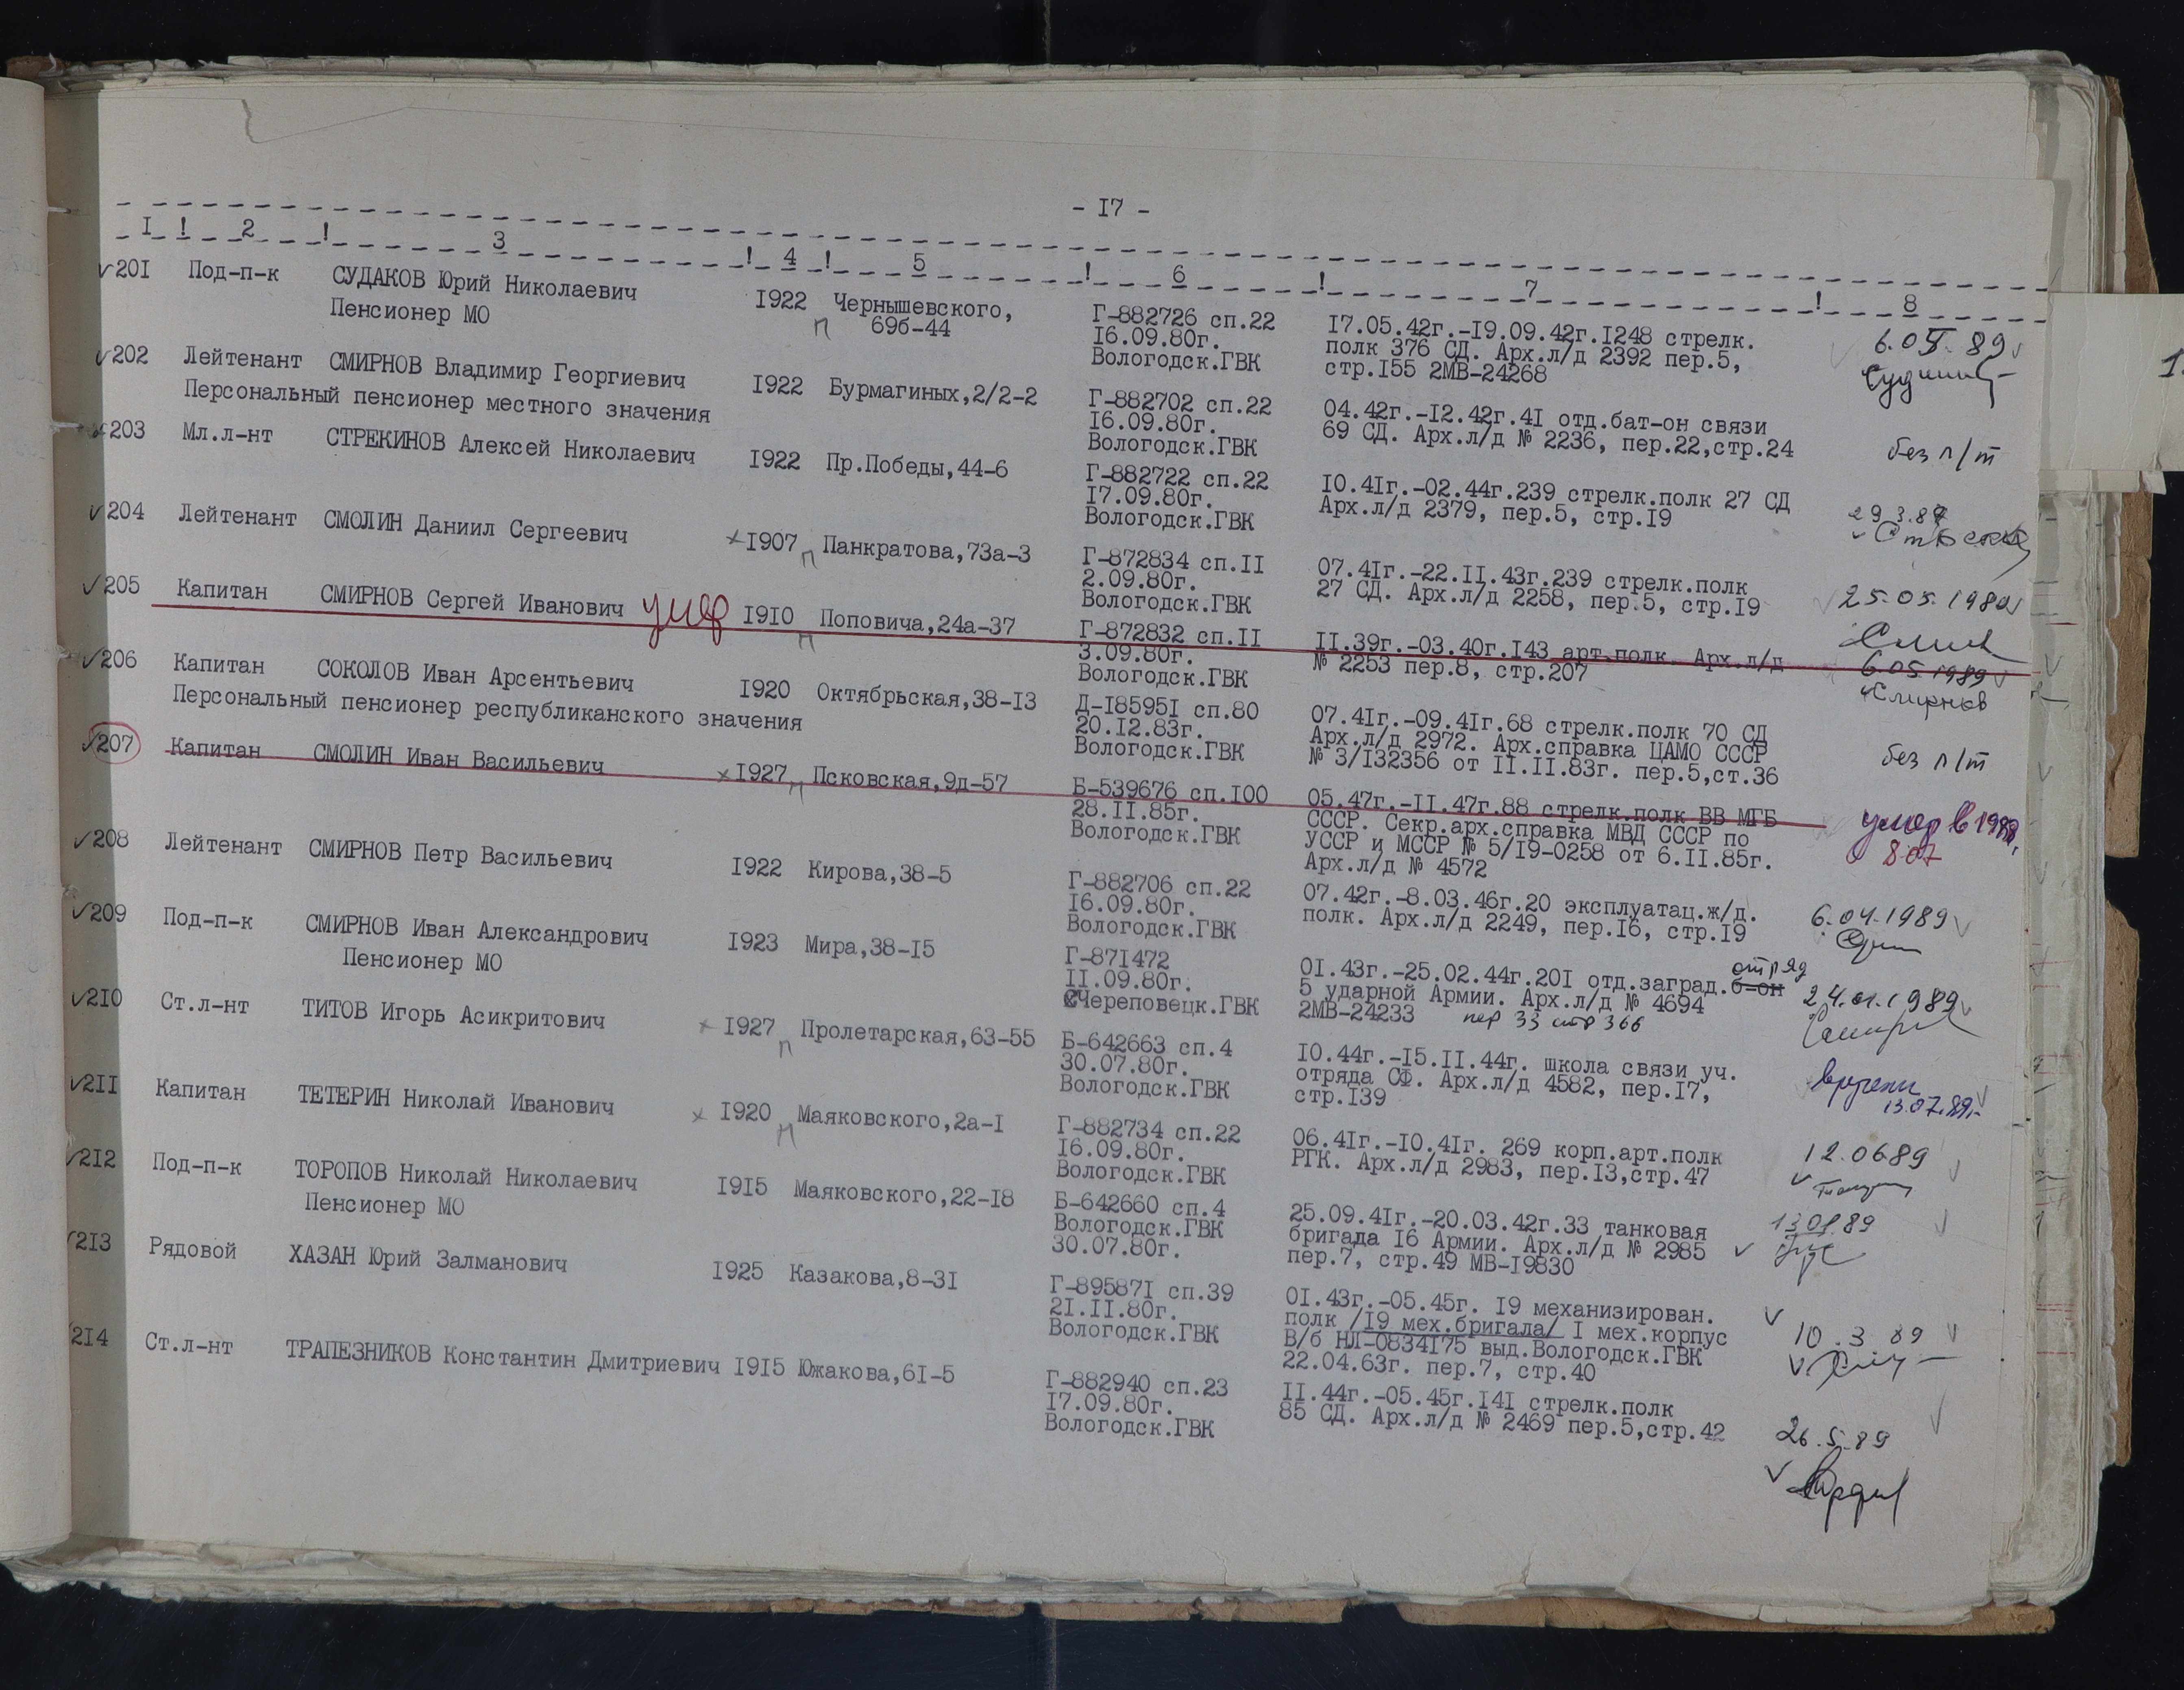 - I7 -
I ! 2 ! 3 ! 4 ! 5 ! 6 ! 7 ! 8
20I Под-п-к СУДАКОВ Юрий Николаевич I922 Чернышевского, Г-882726 сп.22 I7.05.42г.-I9.09.42г.I248 стрелк. 6.05.89
Пенсионер МО п 69б-44 I6.09.80г. полк 376 СД. Арх.л/д 2392 пер.5,
Вологодск.ГВК стр.I55 2МВ-24268
202 Лейтенант СМИРНОВ Владимир Георгиевич I922 Бурмагиных,2/2-2 Г-882702 сп.22 04.42г.-I2.42г.4I отд.бат-он связи
Персональный пенсионер местного значения I6.09.80г. 69 СД. Арх.л/д № 2236, пер.22,стр.24 без п/т
Вологодск.ГВК
203 Мл.л-нт СТРЕКИНОВ Алексей Николаевич I922 Пр.Победы,44-6 Г-882722 сп.22 I0.4Iг.-02.44г.239 стрелк.полк 27 СД
I7.09.80г. Арх.л/д 2379, пер.5, стр.I9 29.3.89
Вологодск.ГВК
204 Лейтенант СМОЛИН Даниил Сергеевич I907 п Панкратова,73а-3 Г-872834 сп.II 07.4Iг.-22.II.43г.239 стрелк.полк
2.09.80г. 27 СД. Арх.л/д 2258, пер.5, стр.I9 25.05.1989
Вологодск.ГВК
205 Капитан СМИРНОВ Сергей Иванович умер I910 п Поповича,24а-37 Г-872832 сп.II II.39г.-03.40г.I43 арт.полк. Арх.л/д
3.09.80г. № 2253 пер.8, стр.207 6.05.1989
Вологодск.ГВК Смирнов
206 Капитан СОКОЛОВ Иван Арсентьевич I920 Октябрьская,38-I3 Д-I8595I сп.80 07.4Iг.-09.4Iг.68 стрелк.полк 70 СД
Персональный пенсионер республиканского значения 20.I2.83г. Арх.л/д 2972. Арх.справка ЦАМО СССР
Вологодск.ГВК № 3/I32356 от II.II.83г. пер.5,ст.36 без п/т
207 Капитан СМОЛИН Иван Васильевич I927 п Псковская,9д-57 Б-539676 сп.I00 05.47г.-II.47г.88 стрелк.полк ВВ МГБ умер в 1988,
28.II.85г. СССР. Секр.арх.справка МВД СССР по 8.07
Вологодск.ГВК УССР и МССР № 5/I9-0258 от 6.II.85г.
Арх.л/д № 4572
208 Лейтенант СМИРНОВ Петр Васильевич I922 Кирова,38-5 Г-882706 сп.22 07.42г.-8.03.46г.20 эксплуатац.ж/д. 6.04.1989
I6.09.80г. полк. Арх.л/д 2249, пер.I6, стр.I9
Вологодск.ГВК
209 Под-п-к СМИРНОВ Иван Александрович I923 Мира,38-I5 Г-87I472 0I.43г.-25.02.44г.20I отд.заград.б-он отряд
Пенсионер МО II.09.80г. 5 ударной Армии. Арх.л/д № 4694 24.01.1989
Череповецк.ГВК 2МВ-24233 пер 33 стр 366
2I0 Ст.л-нт ТИТОВ Игорь Асикритович I927 п Пролетарская,63-55 Б-642663 сп.4 I0.44г.-I5.II.44г. школа связи уч.
30.07.80г. отряда СФ. Арх.л/д 4582, пер.I7, вручен
Вологодск.ГВК стр.I39 13.07.89г.
2II Капитан ТЕТЕРИН Николай Иванович I920 п Маяковского,2а-I Г-882734 сп.22 06.4Iг.-I0.4Iг. 269 корп.арт.полк 12.06.89
I6.09.80г. РГК. Арх.л/д 2983, пер.I3,стр.47
Вологодск.ГВК
2I2 Под-п-к ТОРОПОВ Николай Николаевич I9I5 Маяковского,22-I8 Б-642660 сп.4 25.09.4Iг.-20.03.42г.33 танковая
Пенсионер МО Вологодск.ГВК бригада I6 Армии. Арх.л/д № 2985
30.07.80г. пер.7, стр.49 МВ-I9830
2I3 Рядовой ХАЗАН Юрий Залманович I925 Казакова,8-3I Г-89587I сп.39 0I.43г.-05.45г. I9 механизирован.
2I.II.80г. полк /I9 мех.бригала/ I мех.корпус 10.3.89
Вологодск.ГВК В/б НЛ-0834I75 выд.Вологодск.ГВК
22.04.63г. пер.7, стр.40
2I4 Ст.л-нт ТРАПЕЗНИКОВ Константин Дмитриевич I9I5 Южакова,6I-5 Г-882940 сп.23 II.44г.-05.45г.I4I стрелк.полк
I7.09.80г. 85 СД. Арх.л/д № 2469 пер.5,стр.42 26.5.89
Вологодск.ГВК